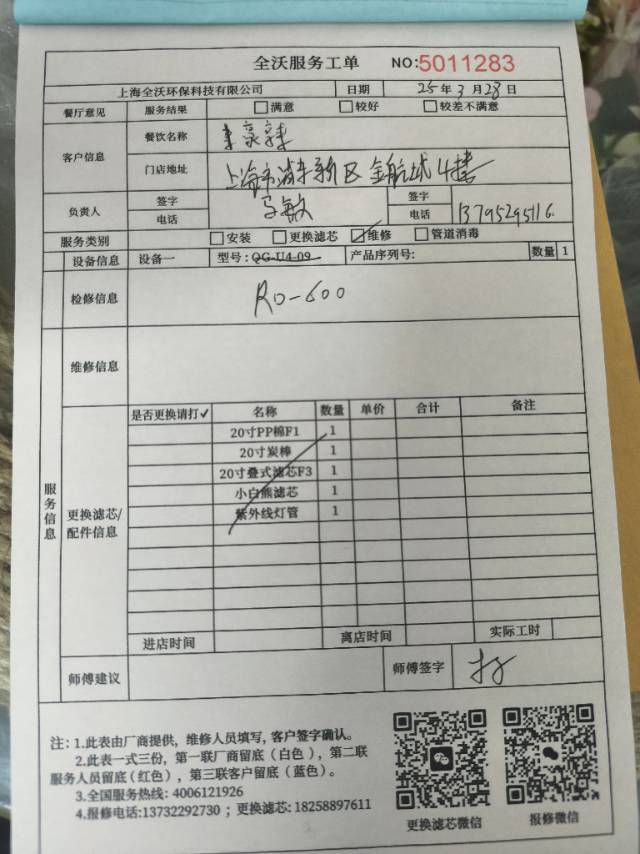 全沃服务工单 NO:5011283
上海全沃环保科技有限公司 日期 25年3月28日
餐厅意见 服务结果 □满意 □较好 □较差不满意
客户信息 餐饮名称
门店地址 上海市浦东新区金航城4楼
负责人 签字 马敏 签字
电话 电话 13795295116.
服务类别 □安装 □更换滤芯 ☑维修 □管道消毒
设备信息 设备一 型号: QG-U4-09 产品序列号: 数量 1
检修信息 RO-600
维修信息
服务信息
更换滤芯/配件信息
是否更换请打✓ 名称 数量 单价 合计 备注
20寸PP棉F1 1
20寸炭棒 1
20寸叠式滤芯F3 1
小白熊滤芯 1
紫外线灯管 1
进店时间 离店时间 实际工时
师傅建议 师傅签字
注: 1.此表由厂商提供，维修人员填写, 客户签字确认。
2.此表一式三份，第一联厂商留底（白色），第二联
服务人员留底(红色)，第三联客户留底（蓝色）。
3.全国服务热线: 4006121926
4.报修电话:13732292730；更换滤芯: 18258897611
更换滤芯微信 报修微信